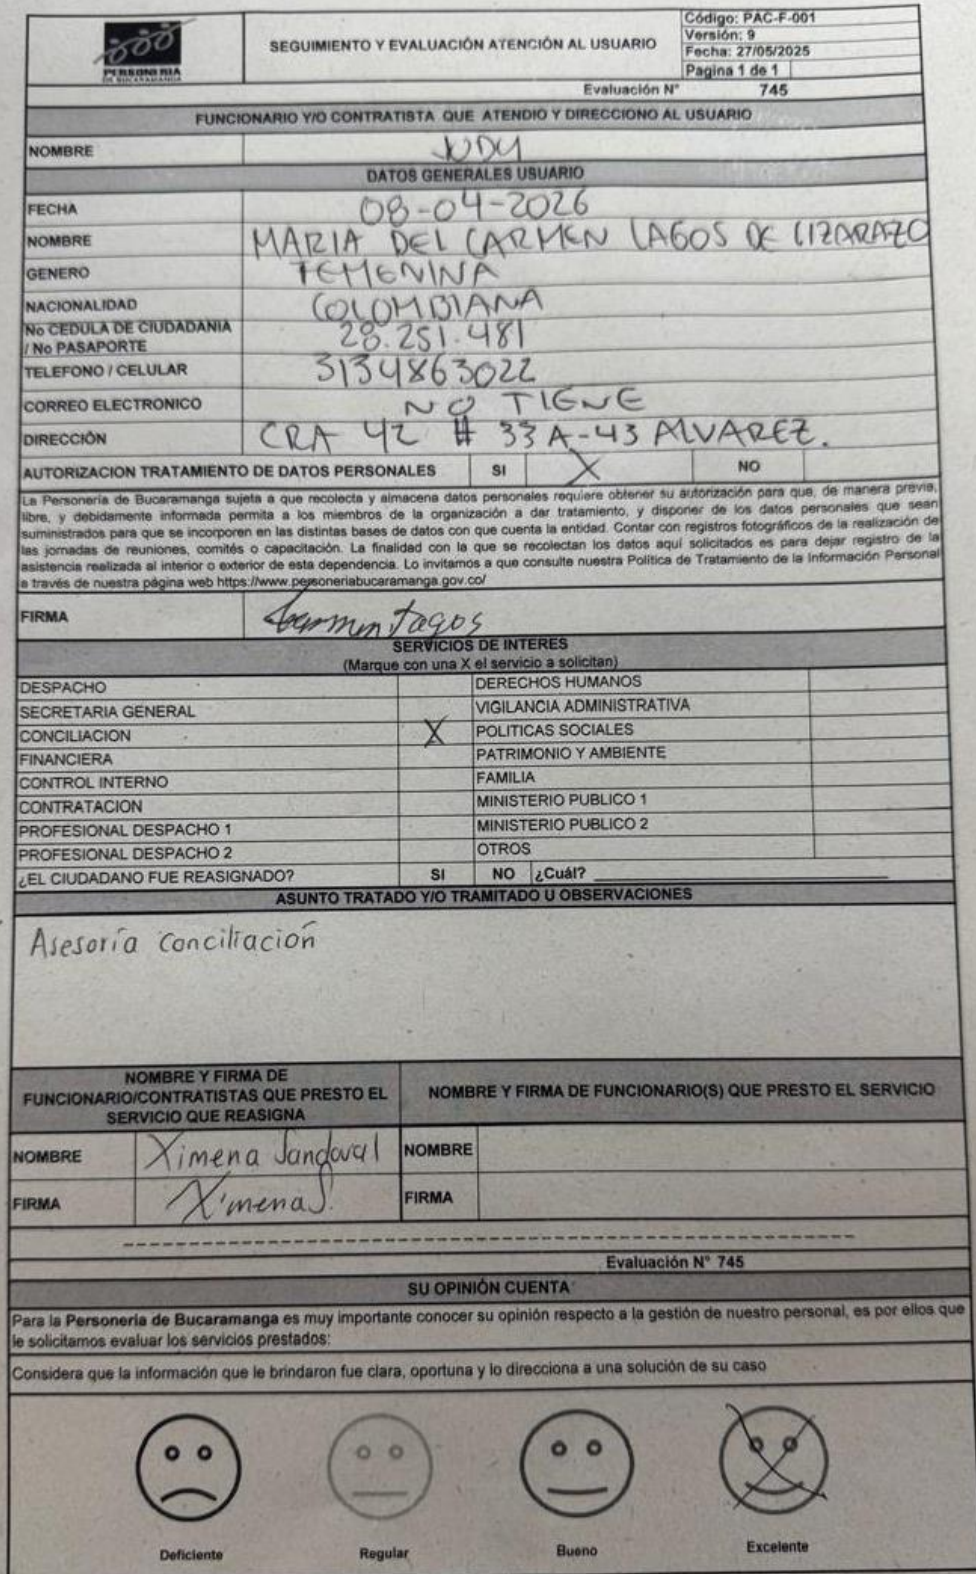 PERSONERIA
DE BUCARAMANGA
SEGUIMIENTO Y EVALUACIÓN ATENCIÓN AL USUARIO
Código: PAC-F-001
Versión: 9
Fecha: 27/05/2025
Pagina 1 de 1
Evaluación N° 745
FUNCIONARIO Y/O CONTRATISTA QUE ATENDIO Y DIRECCIONO AL USUARIO
NOMBRE JUDY
DATOS GENERALES USUARIO
FECHA 08-04-2026
NOMBRE MARIA DEL CARMEN LAGOS DE LIZARAZO
GENERO FEMENINA
NACIONALIDAD COLOMBIANA
No CEDULA DE CIUDADANIA
/ No PASAPORTE 28.251.481
TELEFONO / CELULAR 3134863022
CORREO ELECTRONICO NO TIENE
DIRECCIÓN CRA 42 # 33A-43 ALVAREZ.
AUTORIZACION TRATAMIENTO DE DATOS PERSONALES SI X NO
La Personería de Bucaramanga sujeta a que recolecta y almacena datos personales requiere obtener su autorización para que, de manera previa,
libre, y debidamente informada permita a los miembros de la organización a dar tratamiento, y disponer de los datos personales que sean
suministrados para que se incorporen en las distintas bases de datos con que cuenta la entidad. Contar con registros fotográficos de la realización de
las jornadas de reuniones, comités o capacitación. La finalidad con la que se recolectan los datos aquí solicitados es para dejar registro de la
asistencia realizada al interior o exterior de esta dependencia. Lo invitamos a que consulte nuestra Política de Tratamiento de la Información Personal
a través de nuestra página web https://www.personeriabucaramanga.gov.co/
FIRMA Carmen Lagos
SERVICIOS DE INTERES
(Marque con una X el servicio a solicitan)
DESPACHO DERECHOS HUMANOS
SECRETARIA GENERAL VIGILANCIA ADMINISTRATIVA
CONCILIACION X POLITICAS SOCIALES
FINANCIERA PATRIMONIO Y AMBIENTE
CONTROL INTERNO FAMILIA
CONTRATACION MINISTERIO PUBLICO 1
PROFESIONAL DESPACHO 1 MINISTERIO PUBLICO 2
PROFESIONAL DESPACHO 2 OTROS
¿EL CIUDADANO FUE REASIGNADO? SI NO ¿Cuál?
ASUNTO TRATADO Y/O TRAMITADO U OBSERVACIONES
Asesoría Conciliación
NOMBRE Y FIRMA DE
FUNCIONARIO/CONTRATISTAS QUE PRESTO EL
SERVICIO QUE REASIGNA
NOMBRE Y FIRMA DE FUNCIONARIO(S) QUE PRESTO EL SERVICIO
NOMBRE Ximena Sandoval NOMBRE
FIRMA Ximena S. FIRMA
Evaluación N° 745
SU OPINIÓN CUENTA
Para la Personería de Bucaramanga es muy importante conocer su opinión respecto a la gestión de nuestro personal, es por ellos que
le solicitamos evaluar los servicios prestados:
Considera que la información que le brindaron fue clara, oportuna y lo direcciona a una solución de su caso
Deficiente Regular Bueno Excelente